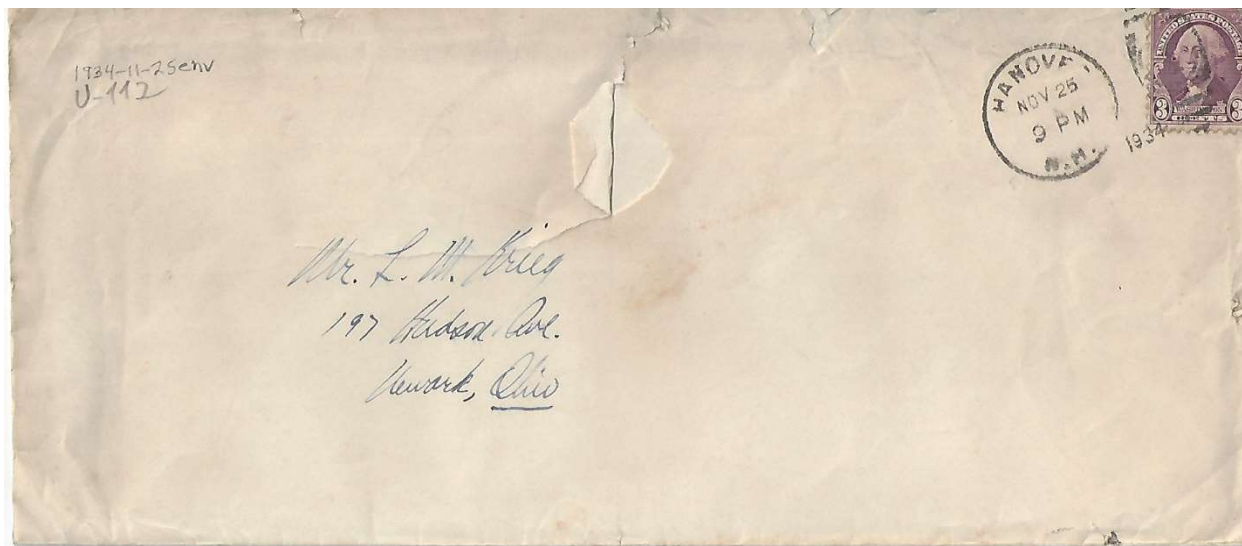 1934-11-25env
U-112
HANOVE
NOV 25
9 PM
N.H.
1934
UNITED STATES POSTAGE
3 3
CENTS
Mr. L. M. Krieg
197 Hudson Ave.
Newark, Ohio